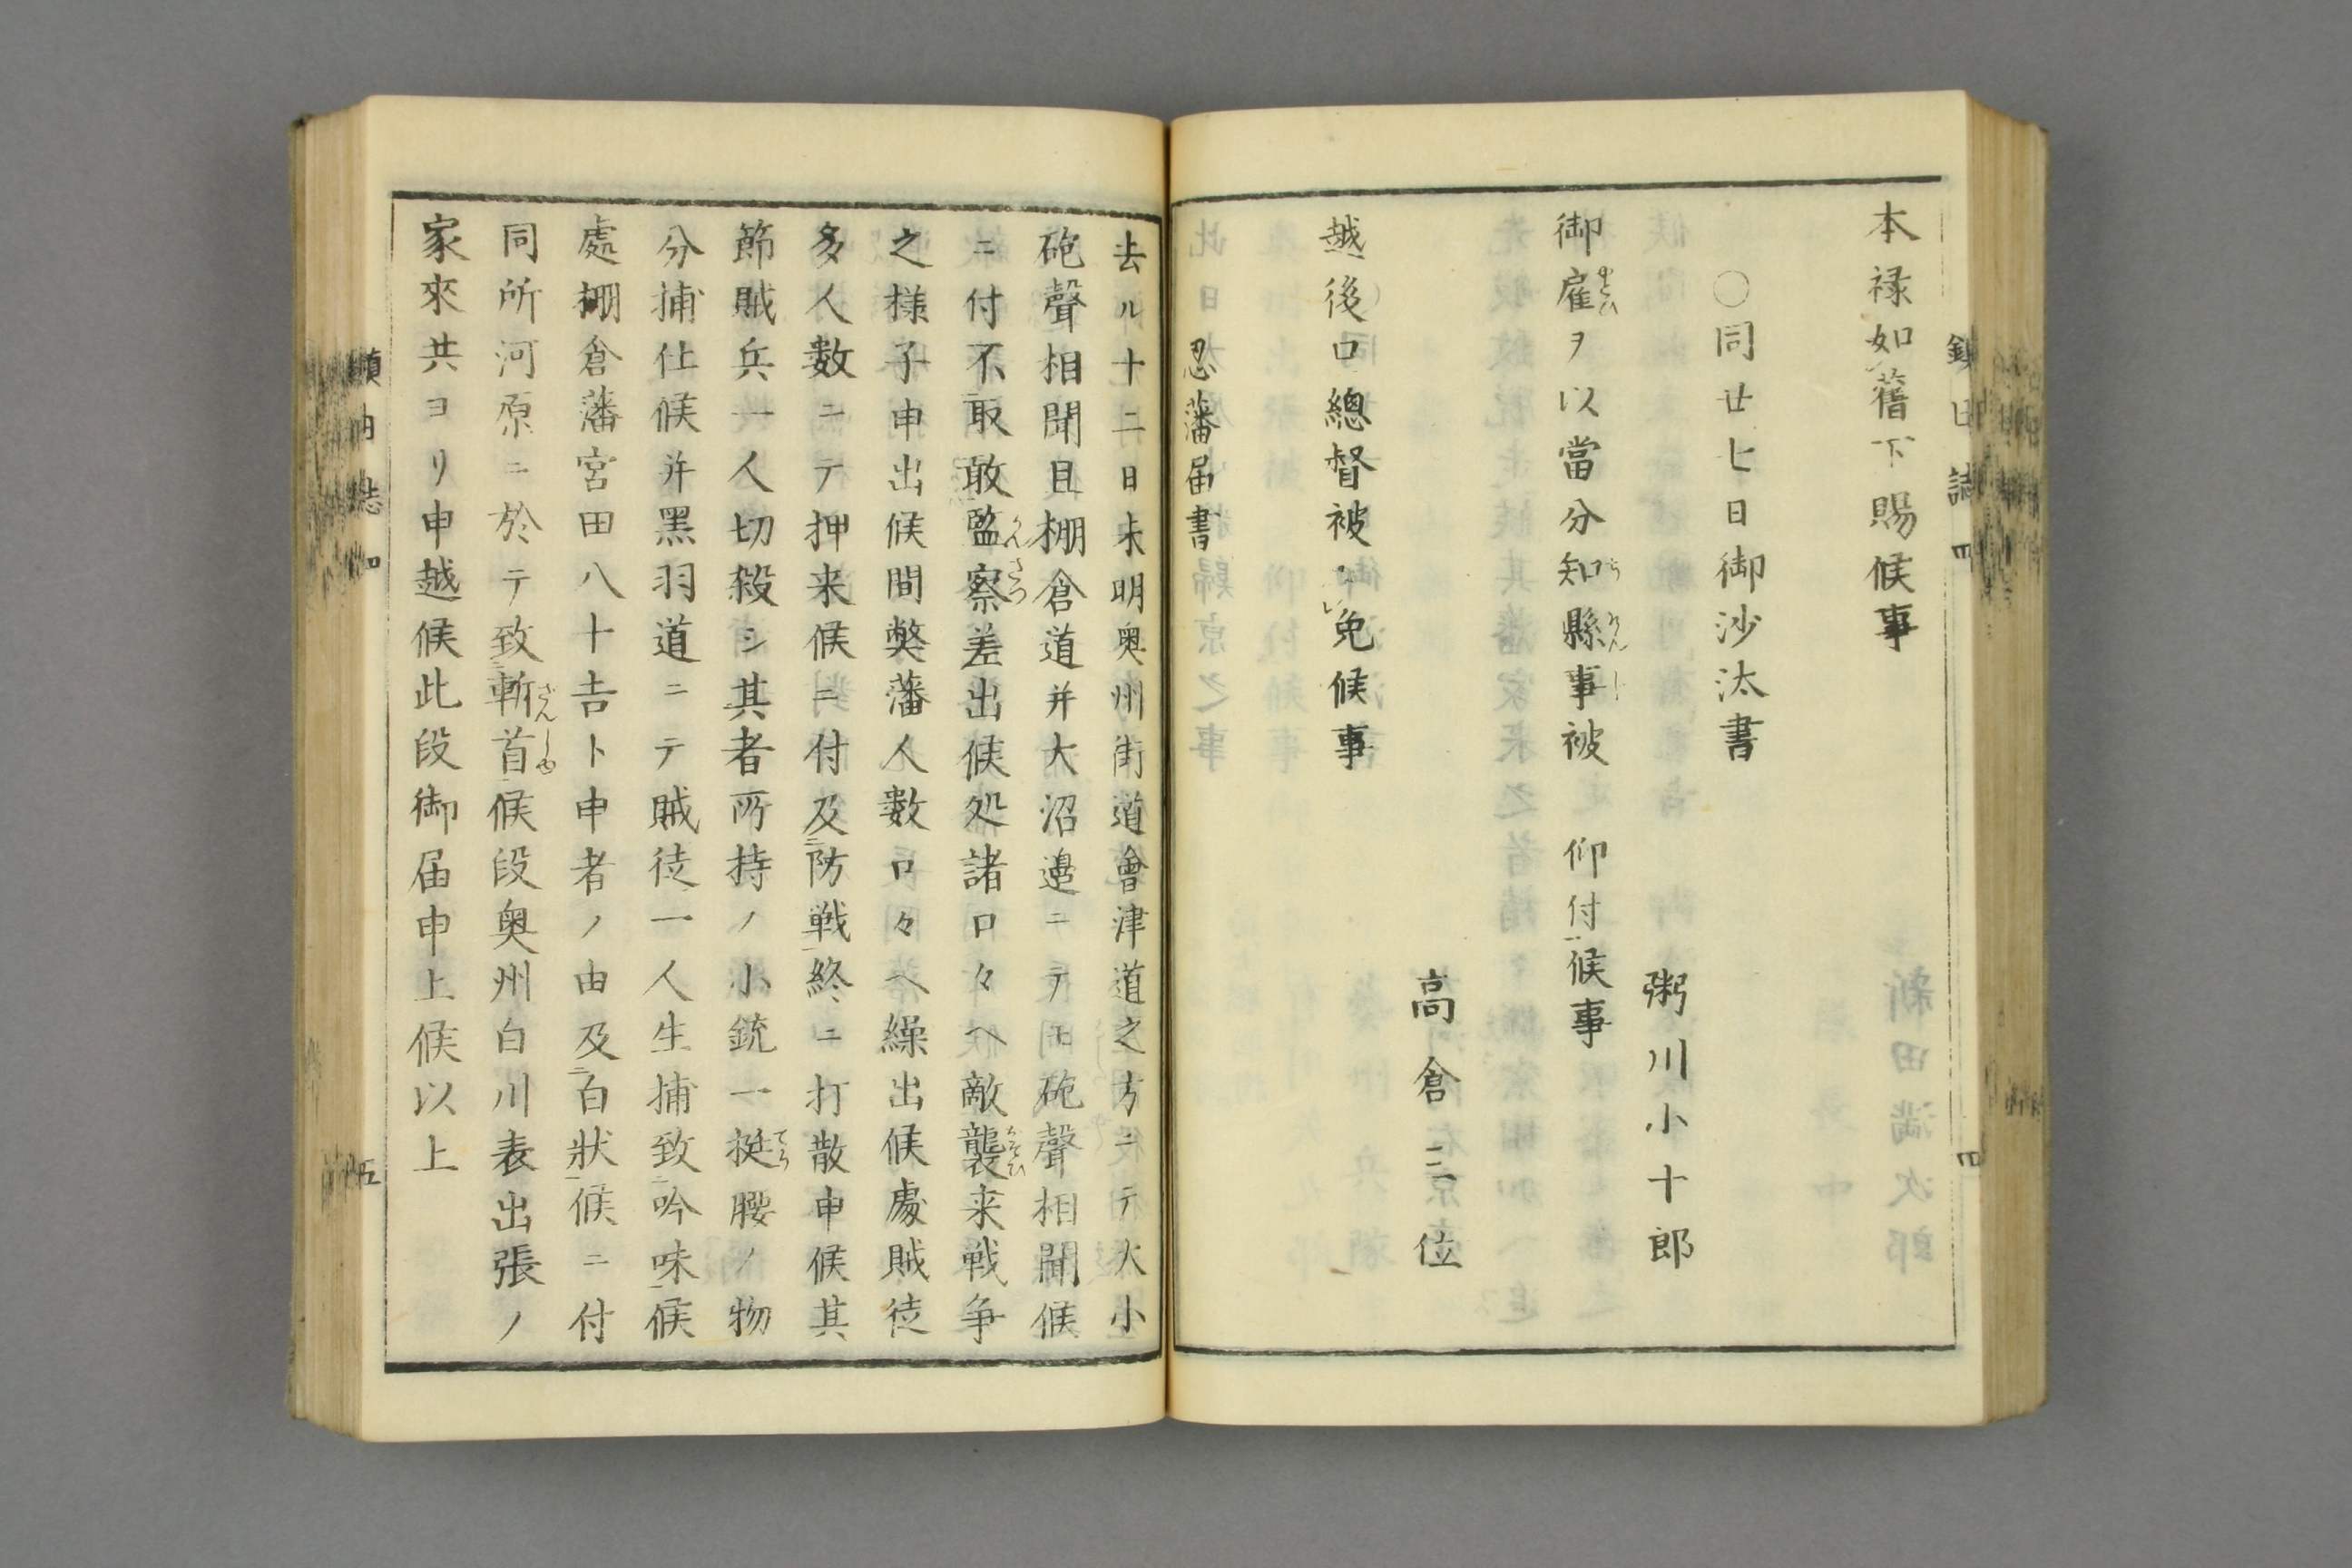 本禄如舊下賜候事
○同廿七日御沙汰書
粥川小十郎
御雇ヲ以當分知縣事被　仰付候事
高倉三位
越後口總督被免候事
忍藩届書
去ル十二日未明奥州街道會津道之方ニテ大小
砲聲相聞且棚倉道并大沼邉ニテモ砲聲相聞候
ニ付不取敢監察差出候処諸口々ヘ敵襲来戦争
之様子申出候間弊藩人數口々ヘ繰出候處賊徒
多人数ニテ押来候ニ付及防戦終ニ打散申候其
節賊兵一人切殺シ其者所持ノ小銃一挺腰ノ物
分捕仕候并黒羽道ニテ賊徒一人生捕致吟味候
處棚倉藩宮田八十吉ト申者ノ由及白状候ニ付
同所河原ニ於テ致斬首候段奥州白川表出張ノ
家來共ヨリ申越候此段御届申上候以上
五